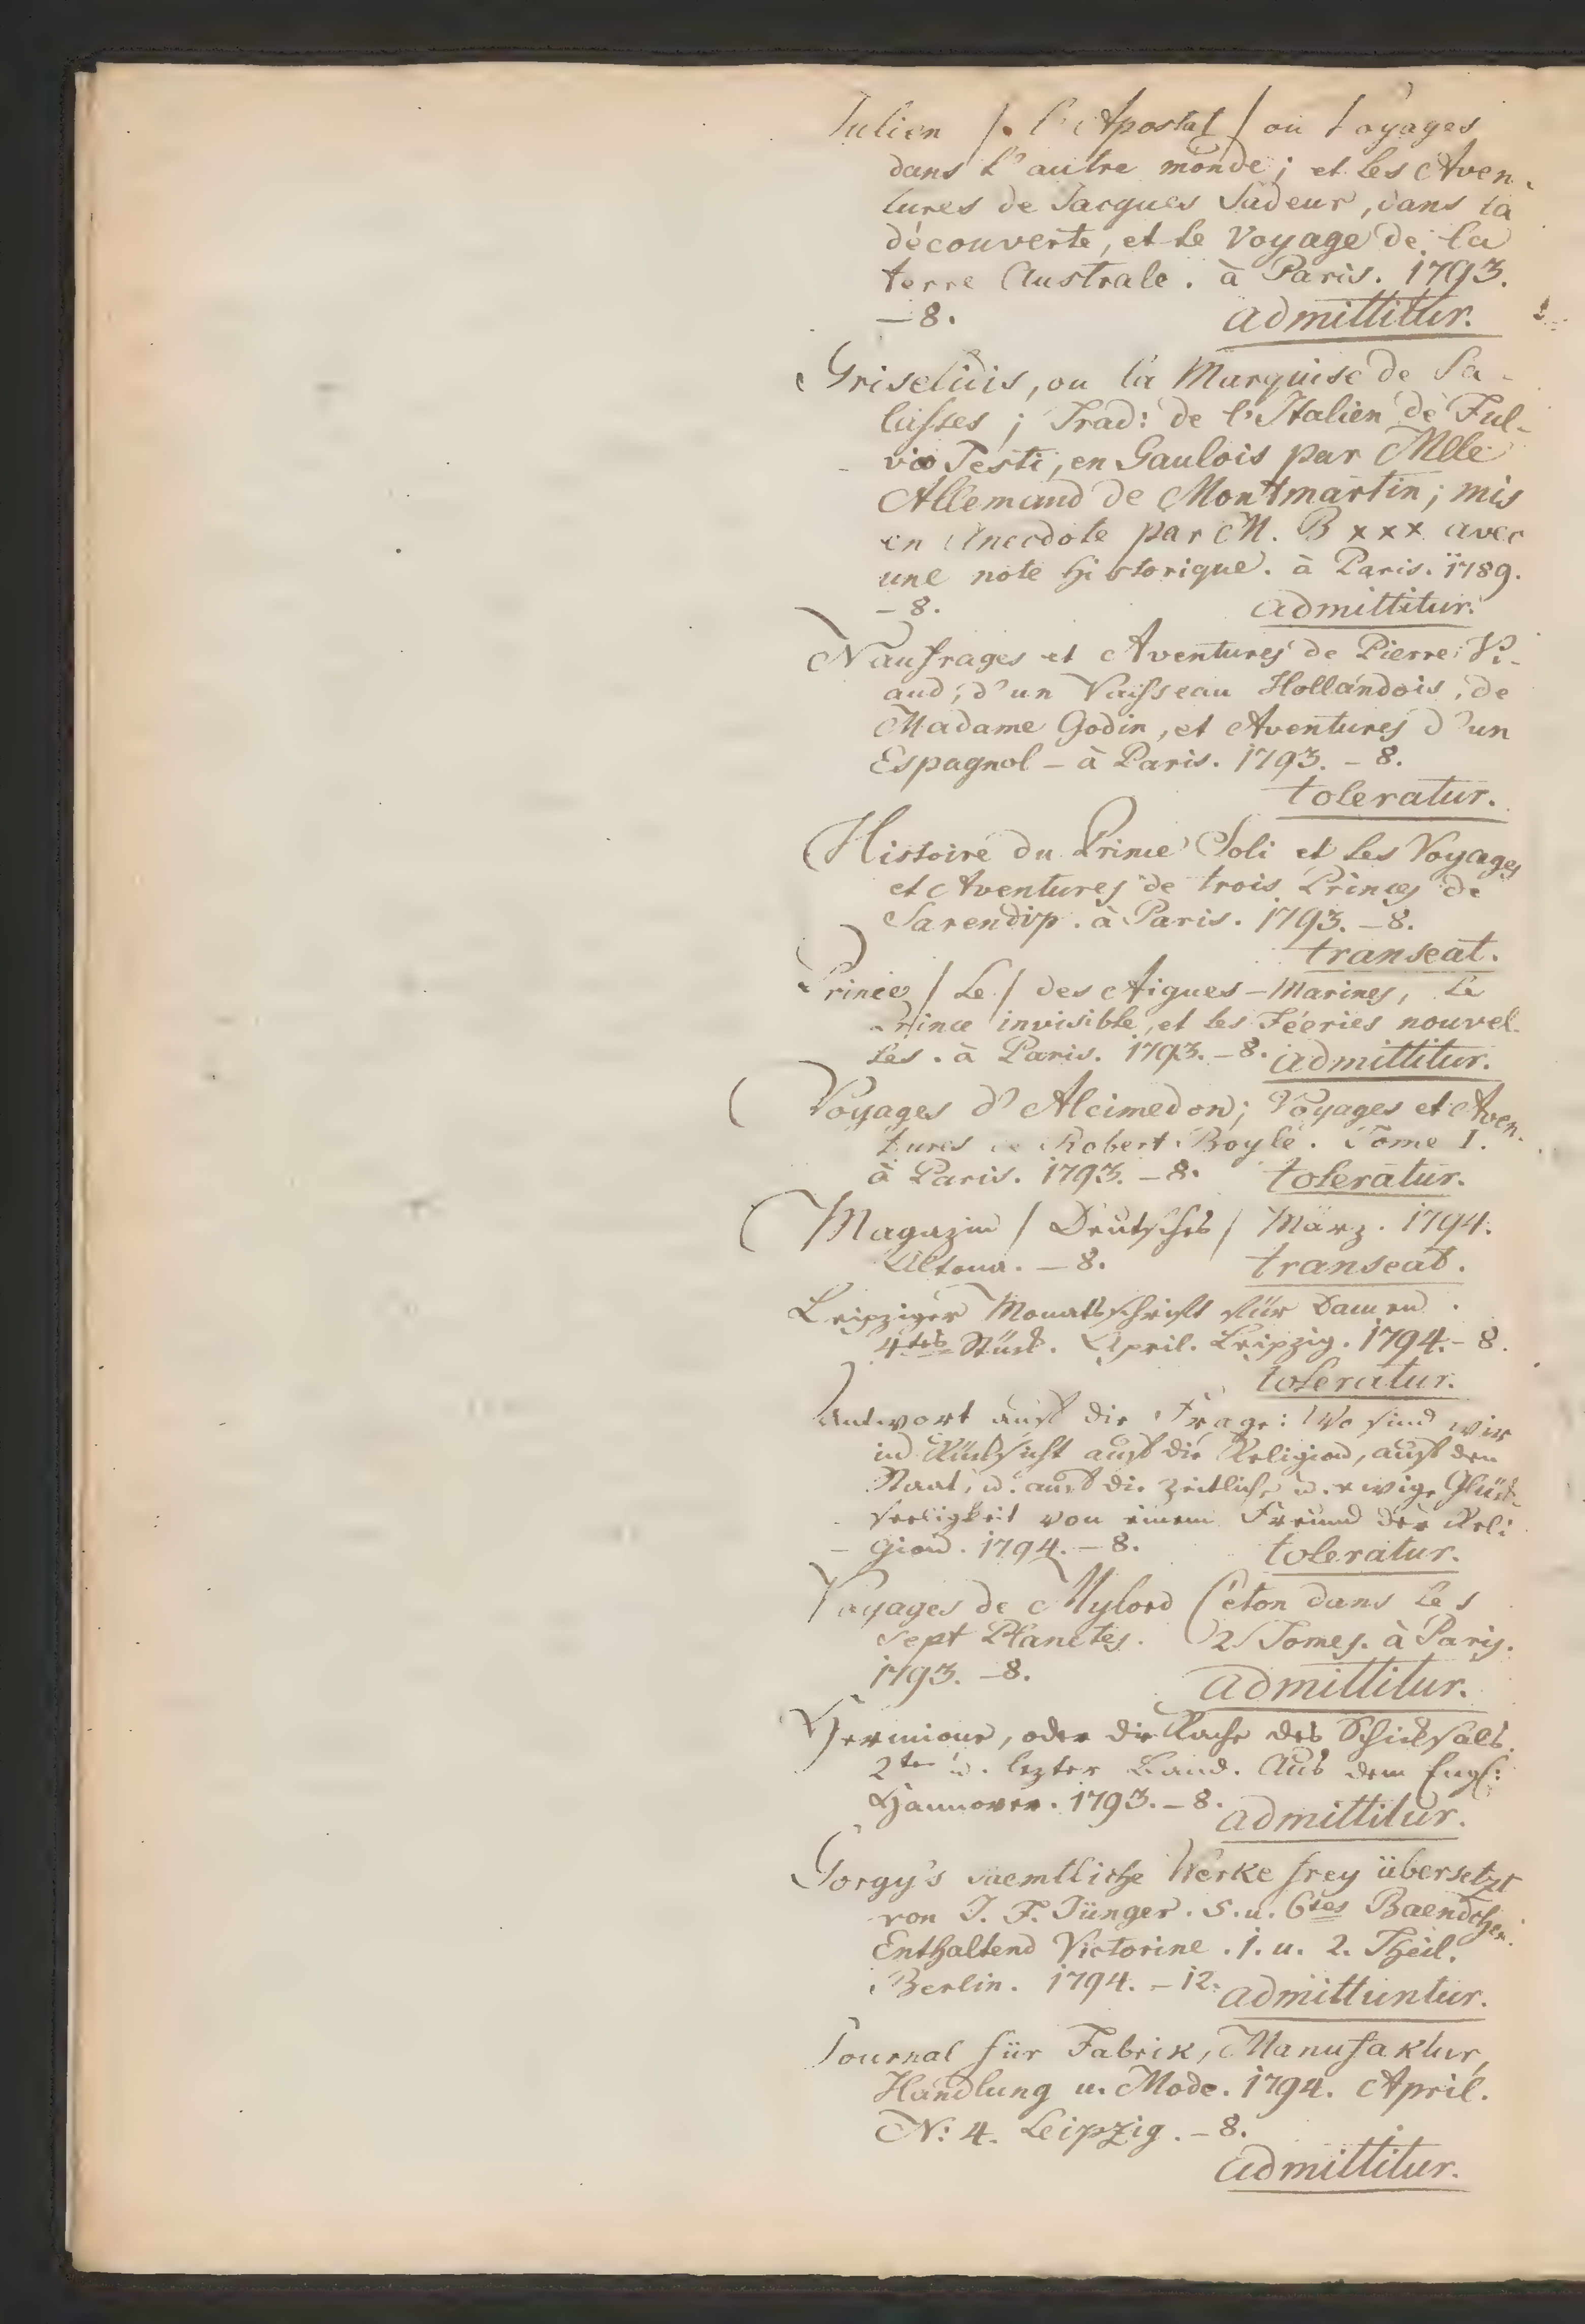 Julien /. l'Apostat / ou Voyages
dans l'autre monde; et les Aven-
tures de Jacques Sadeur, dans la
découverte, et le Voyage de la
terre Australe. à Paris. 1793.
— 8. admittitur.
Griselidis, ou la Marquise de Sa-
lusses; Trad: de l'Italien de Ful-
vio Testi, en Gaulois par Mlle
Allemand de Montmartin; mis
en Anecdote par M. B xxx avec
une note historique. à Paris. 1789.
— 8. admittitur.
Naufrages et Aventures de Pierre Vi-
aud, d'un Vaisseau Hollandois, de
Madame Godin, et Aventures d'un
Espagnol — à Paris. 1793. — 8.
toleratur.
Histoire du Prince Soli et les Voyages
et Aventures de trois Princes de
Sarendip. à Paris. 1793. — 8.
transeat.
Prince / Le / des Aigues-Marines, Le
Prince invisible, et les Féeries nouvel-
les. à Paris. 1793. — 8. admittitur.
Voyages d'Alcimedon; Voyages et Aven-
tures de Robert Boyle. Tome I.
à Paris. 1793. — 8. toleratur.
Magazin / Deutsches / März. 1794.
Altona. — 8. transeat.
Leipziger Monatsschrift für Damen.
4tes Stück. April. Leipzig. 1794. — 8.
toleratur.
Antwort auf die Frage: Wo sind wir
in Rücksicht auf die Religion, auf den
Staat, u. auf die zeitliche u. ewige Glück-
seeligkeit von einem Freund der Reli-
gion. 1794. — 8. toleratur.
Voyages de Mylord Céton dans les
sept Planetes. 2 Tomes. à Paris.
1793. — 8. admittitur.
Hermione, oder die Rache des Schicksals.
2ter u. lezter Band. Aus dem Engl:
Hannover. 1793. — 8. admittitur.
Gorgy's saemtliche Werke frey übersetzt
von J. F. Jünger. 5. u. 6tes Baendchen.
Enthaltend Victorine. 1. u. 2. Theil.
Berlin. 1794. — 12. admittuntur.
Journal für Fabrik, Manufaktur,
Handlung u. Mode. 1794. April.
N: 4. Leipzig. — 8.
admittitur.